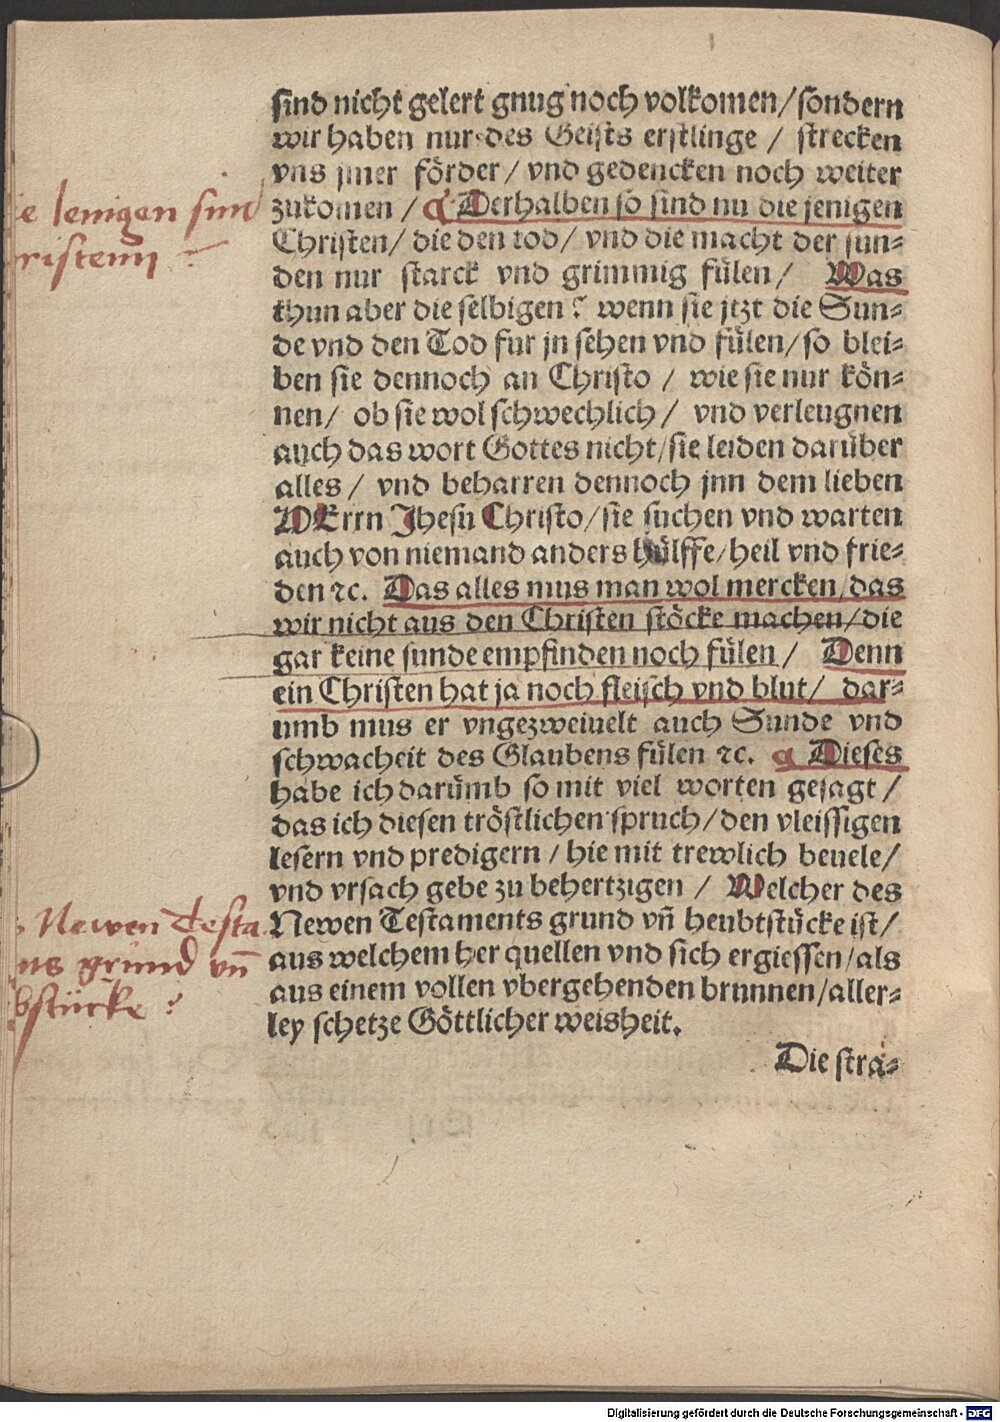 sind nicht gelert gnug noch volkomen/sondern
wir haben nur des Geists erstlinge / strecken
vns jmer förder / vnd gedencken noch weiter
zukomen / Derhalben so sind nu die jenigen
Christen/ die den tod/ vnd die macht der sun⸗
den nur starck vnd grimmig fülen/ Was
thun aber die selbigen? wenn sie jtzt die Sun⸗
de vnd den Tod fur jn sehen vnd fülen/so blei⸗
ben sie dennoch an Christo / wie sie nur kön⸗
nen/ ob sie wol schwechlich/ vnd verleugnen
auch das wort Gottes nicht/sie leiden darüber
alles/ vnd beharren dennoch jnn dem lieben
HErrn Jhesu Christo/sie suchen vnd warten
auch von niemand anders hülffe/heil vnd frie⸗
den ꝛc. Das alles mus man wol mercken/das
wir nicht aus den Christen stöcke machen/die
gar keine sunde empfinden noch fülen/ Denn
ein Christen hat ja noch fleisch vnd blut/ dar⸗
umb mus er vngezweiuelt auch Sunde vnd
schwacheit des Glaubens fülen ꝛc. Dieses
habe ich darümb so mit viel worten gesagt/
das ich diesen tröstlichen spruch/den vleissigen
lesern vnd predigern/hie mit trewlich beuele/
vnd vrsach gebe zu behertzigen / Welcher des
Newen Testaments grund vn̄ heubtstücke ist/
aus welchem her quellen vnd sich ergiessen/als
aus einem vollen vbergehenden brunnen/aller⸗
ley schetze Göttlicher weisheit.
Die stra⸗
e Ienigen sind
risten
Newen Testa
ns grund vn̄
bstücke
Digitalisierung gefördert durch die Deutsche Forschungsgemeinschaft - DFG